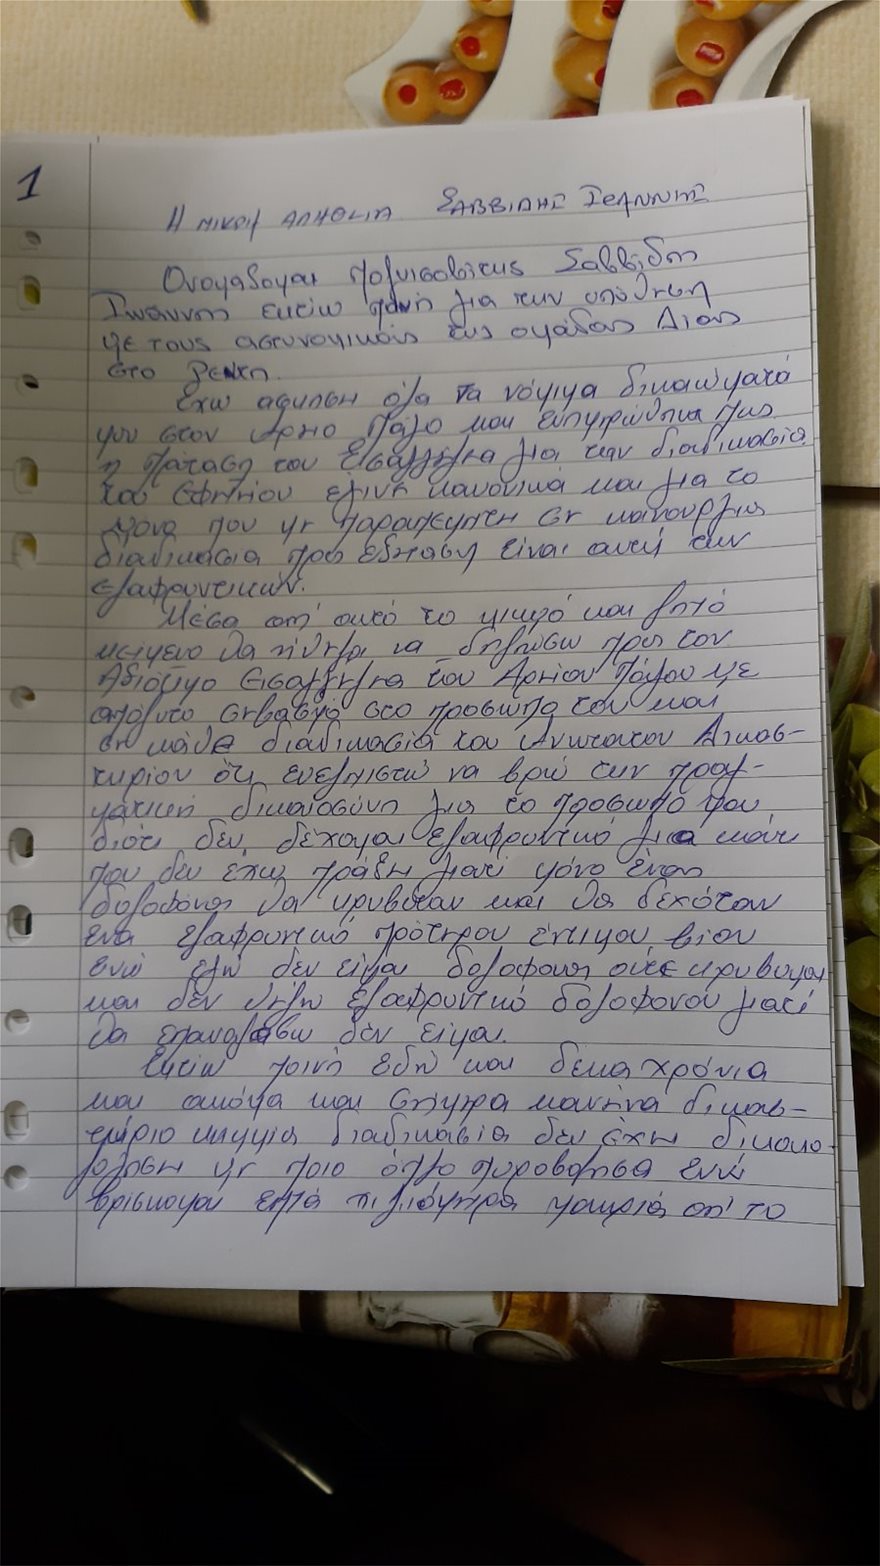 1
Η ΜΙΚΡΗ ΑΛΗΘΕΙΑ ΣΑΒΒΙΔΗΣ ΙΩΑΝΝΗΣ
Ονομάδομαι Σαββίδης
Ιωάννης εκτίω ποινή για των υπόθεση
με τους αστυνομικούς της ομάδας Δίας
στο Ρέντη.
Έχω ασκήση όλα τα νόμιμα δικαιώματα
μου στον Άρηο Πάγο και ενημερώθηκα πως
η πρόταση του Εισαγγελέα για την διαδικασία
του Εφετείου έγινε κανονικά και για το
μόνο που με παραπέμπει σε καινούργια
διαδικασία προς εξέταση είναι αυτή των
ελαφρυντικών.
Μέσα απ' αυτό το μικρό και λητό
κείμενο θα ήθελα να δηλώσω προς τον
Αξιότιμο Εισαγγελέα του Αρείου Πάγου με
απόλυτο σεβασμό στο πρόσωπο του και
σε κάθε διαδικασία του Ανωτάτου Δικασ-
τηρίου ότι ευελπιστώ να βρω την πραγ-
ματική δικαιοσύνη για το πρόσωπό μου
διότι δεν δέχομαι ελαφρυντικό για κάτι
που δεν έχω πράξη γιατί μόνο ένας
δολοφόνος θα κρυβόταν και θα δεχόταν
ένα ελαφρυντικό πρότερου έντιμου βίου
ενώ εγώ δεν είμαι δολοφόνος ούτε κρύβομαι
και δεν θέλω ελαφρυντικό δολοφόνου γιατί
θα επαναλάβω δεν είμαι.
Εκτίω ποινή εδώ και δέκα χρόνια
και ακόμα και σήμερα κανένα δικασ-
τήριο καμμία διαδικασία δεν έχει δικαιο-
λογήση με ποιο όπλο πυροβόλησα ενώ
βρίσκομαι επτά χιλιόμετρα μακριά απ' το